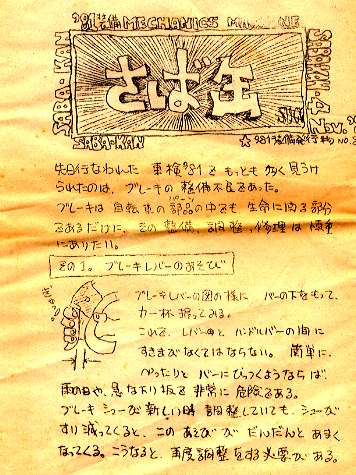 '81整備 MECHANICS MAGAZINE
SABA-KAN
さば缶
SABA-KAN
SABA-KAN
★ '81整備発行物 NO.
先日行なわれた 車検'81で もっとも 多く見うけ
られたのは、ブレーキの 整備不良であった。
ブレーキは 自転車の 部品の中でも 生命に関る部分
であるだけに、その 整備、調整、修理は 慎重
にありたい。
その1。 ブレーキレバーのあそび
ブレーキレバーの図の様に バーの下をもって、
力一杯 握ってみる。
これで、レバーと ハンドルバーの間に
すきまがなくてはならない。 簡単に、
ぺったりと バーにひっつくようならば、
雨の日や、急な下り坂で 非常に 危険である。
ブレーキ シューが 新しい時 調整していても、シューが
すり減ってくると、この あそびが だんだんと あまく
なってくる。こうなると、再度調整をする必要がある。